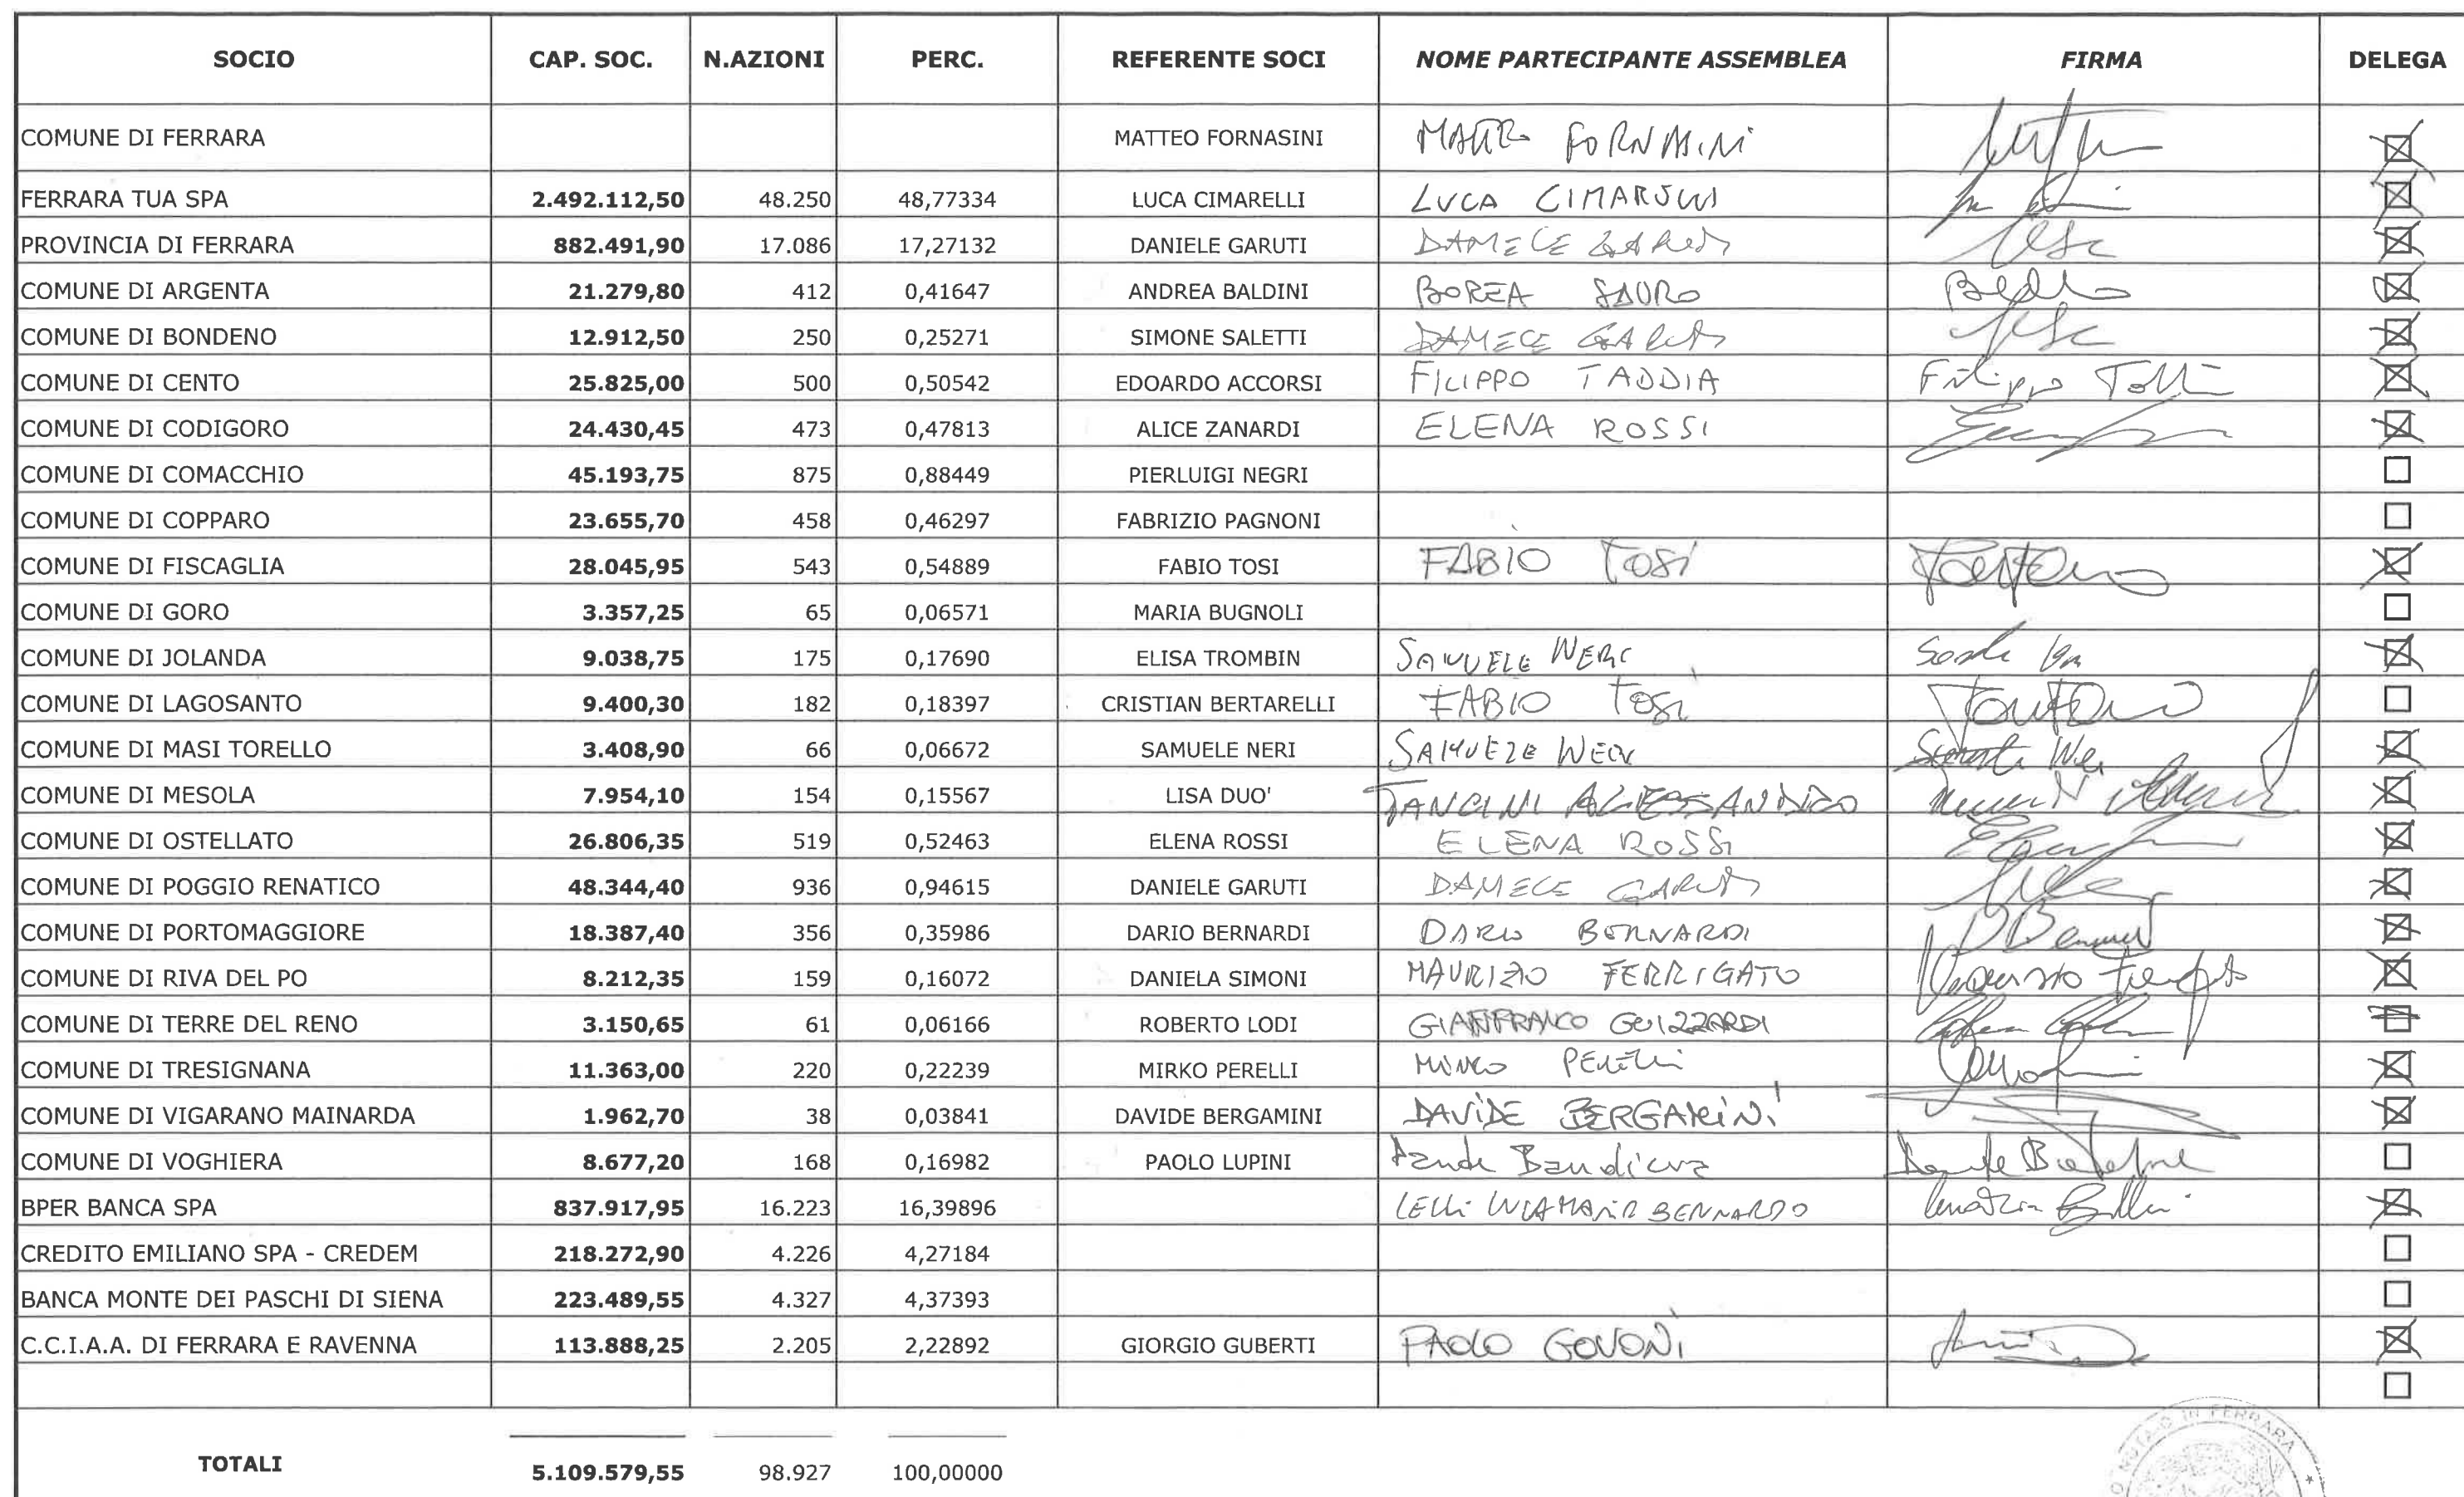 SOCIO CAP. SOC. N.AZIONI PERC. REFERENTE SOCI NOME PARTECIPANTE ASSEMBLEA FIRMA DELEGA
COMUNE DI FERRARA MATTEO FORNASINI
FERRARA TUA SPA 2.492.112,50 48.250 48,77334 LUCA CIMARELLI LUCA
PROVINCIA DI FERRARA 882.491,90 17.086 17,27132 DANIELE GARUTI
COMUNE DI ARGENTA 21.279,80 412 0,41647 ANDREA BALDINI BOREA SAURO
COMUNE DI BONDENO 12.912,50 250 0,25271 SIMONE SALETTI
COMUNE DI CENTO 25.825,00 500 0,50542 EDOARDO ACCORSI FILIPPO TADDIA Filippo
COMUNE DI CODIGORO 24.430,45 473 0,47813 ALICE ZANARDI ELENA ROSSI
COMUNE DI COMACCHIO 45.193,75 875 0,88449 PIERLUIGI NEGRI
COMUNE DI COPPARO 23.655,70 458 0,46297 FABRIZIO PAGNONI
COMUNE DI FISCAGLIA 28.045,95 543 0,54889 FABIO TOSI FABIO TOSI
COMUNE DI GORO 3.357,25 65 0,06571 MARIA BUGNOLI
COMUNE DI JOLANDA 9.038,75 175 0,17690 ELISA TROMBIN SAMUELE NERI
COMUNE DI LAGOSANTO 9.400,30 182 0,18397 CRISTIAN BERTARELLI FABIO TOSI
COMUNE DI MASI TORELLO 3.408,90 66 0,06672 SAMUELE NERI SAMUELE NERI
COMUNE DI MESOLA 7.954,10 154 0,15567 LISA DUO' ALESSANDRO
COMUNE DI OSTELLATO 26.806,35 519 0,52463 ELENA ROSSI ELENA ROSSI
COMUNE DI POGGIO RENATICO 48.344,40 936 0,94615 DANIELE GARUTI
COMUNE DI PORTOMAGGIORE 18.387,40 356 0,35986 DARIO BERNARDI DARIO BERNARDI
COMUNE DI RIVA DEL PO 8.212,35 159 0,16072 DANIELA SIMONI MAURIZIO FERRIGATO
COMUNE DI TERRE DEL RENO 3.150,65 61 0,06166 ROBERTO LODI GIANFRANCO GUIZZARDI
COMUNE DI TRESIGNANA 11.363,00 220 0,22239 MIRKO PERELLI MIRKO PERELLI
COMUNE DI VIGARANO MAINARDA 1.962,70 38 0,03841 DAVIDE BERGAMINI DAVIDE BERGAMINI
COMUNE DI VOGHIERA 8.677,20 168 0,16982 PAOLO LUPINI Bandiera
BPER BANCA SPA 837.917,95 16.223 16,39896 LELLI BERNARDO
CREDITO EMILIANO SPA - CREDEM 218.272,90 4.226 4,27184
BANCA MONTE DEI PASCHI DI SIENA 223.489,55 4.327 4,37393
C.C.I.A.A. DI FERRARA E RAVENNA 113.888,25 2.205 2,22892 GIORGIO GUBERTI PAOLO GOVONI
TOTALI 5.109.579,55 98.927 100,00000
NOTAIO IN FERRARA